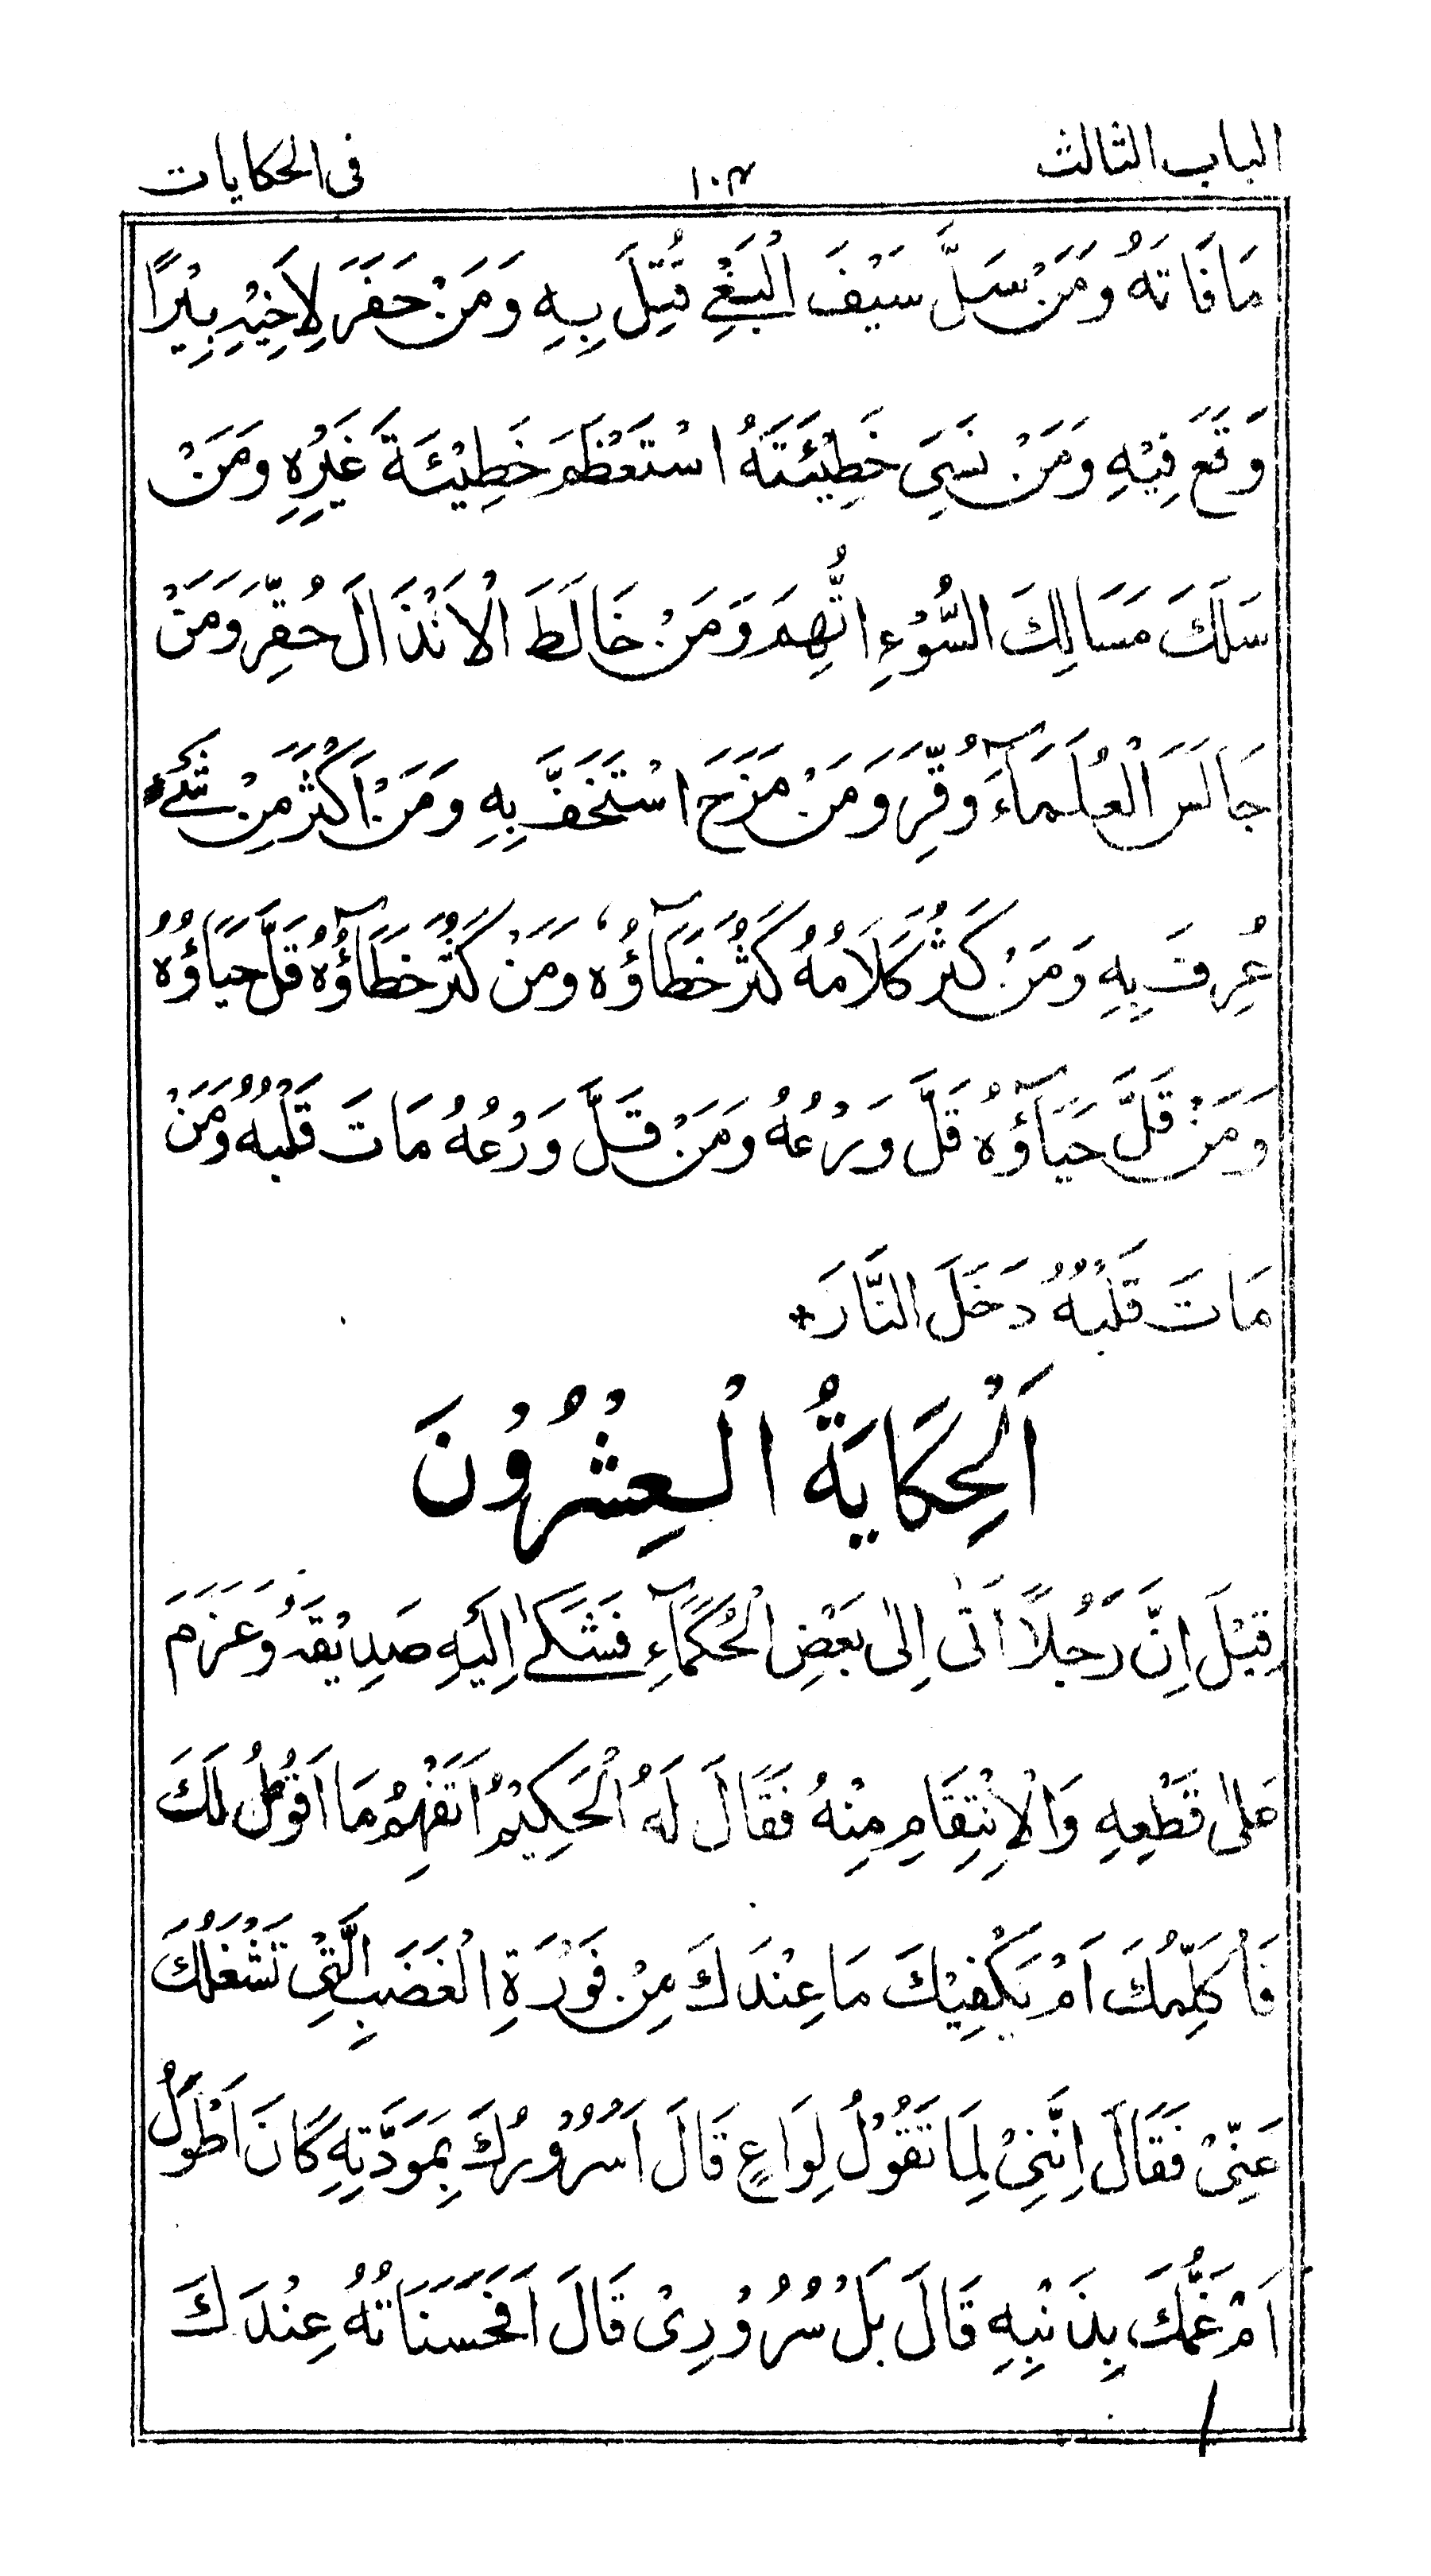 الباب الثالث ١٠٣ فى الحكايات
مَا فَاتَهُ وَمَنْ سَلَّ سَيْفَ الْبَغْىِ قُتِلَ بِهِ وَمَنْ حَفَرَ لِاَخِيْهِ بِيْرًا
وَقَعَ فِيْهِ وَمَنْ نَسِىَ خَطِيْئَتَهُ اسْتَعْظَمَ خَطِيْئَةَ غَيْرِهِ وَمَنْ
سَلَكَ مَسَالِكَ السُّوْءِ اتُّهِمَ وَمَنْ خَالَطَ الْاَنْذَالَ حُقِّرَ وَمَنْ
جَالَسَ الْعُلَمَآءَ وُقِّرَ وَمَنْ مَزَحَ اسْتُخِفَّ بِهِ وَمَنْ اَكْثَرَ مِنْ شَىْءٍ
عُرِفَ بِهِ وَمَنْ كَثُرَ كَلَامُهُ كَثُرَ خَطَآؤُهُ وَمَنْ كَثُرَ خَطَآؤُهُ قَلَّ حَيَاؤُهُ
وَمَنْ قَلَّ حَيَآؤُهُ قَلَّ وَرْعُهُ وَمَنْ قَلَّ وَرْعُهُ مَاتَ قَلْبُهُ وَمَنْ
مَاتَ قَلْبُهُ دَخَلَ النَّارَ *
اَلْحِكَايَةُ الْعِشْرُوْنَ
قِيْلَ اِنَّ رَجُلًا اَتٰى اِلٰى بَعْضِ الْحُكَمَآءِ فَشَكٰى اِلَيْهِ صَدِيْقَهُ وَعَزَمَ
عَلٰى قَطْعِهِ وَالْاِنْتِقَامِ مِنْهُ فَقَالَ لَهُ الْحَكِيْمُ اَتَفْهَمُ مَا اَقُوْلُ لَكَ
فَاُكَلِّمُكَ اَمْ يَكْفِيْكَ مَا عِنْدَكَ مِنْ فَوْرَةِ الْغَضَبِ الَّتِىْ تَشْغَلُكَ
عَنِّىْ فَقَالَ اِنَّنِىْ لِمَا تَقُوْلُ لِوَاعٍ قَالَ اَسُرُوْرُكَ بِمَوَدَّتِهِ كَانَ اَطْوَلُ
اَمْ غَمُّكَ بِذَنْبِهِ قَالَ بَلْ سُرُوْرِىْ قَالَ اَفَحَسَنَاتُهُ عِنْدَكَ